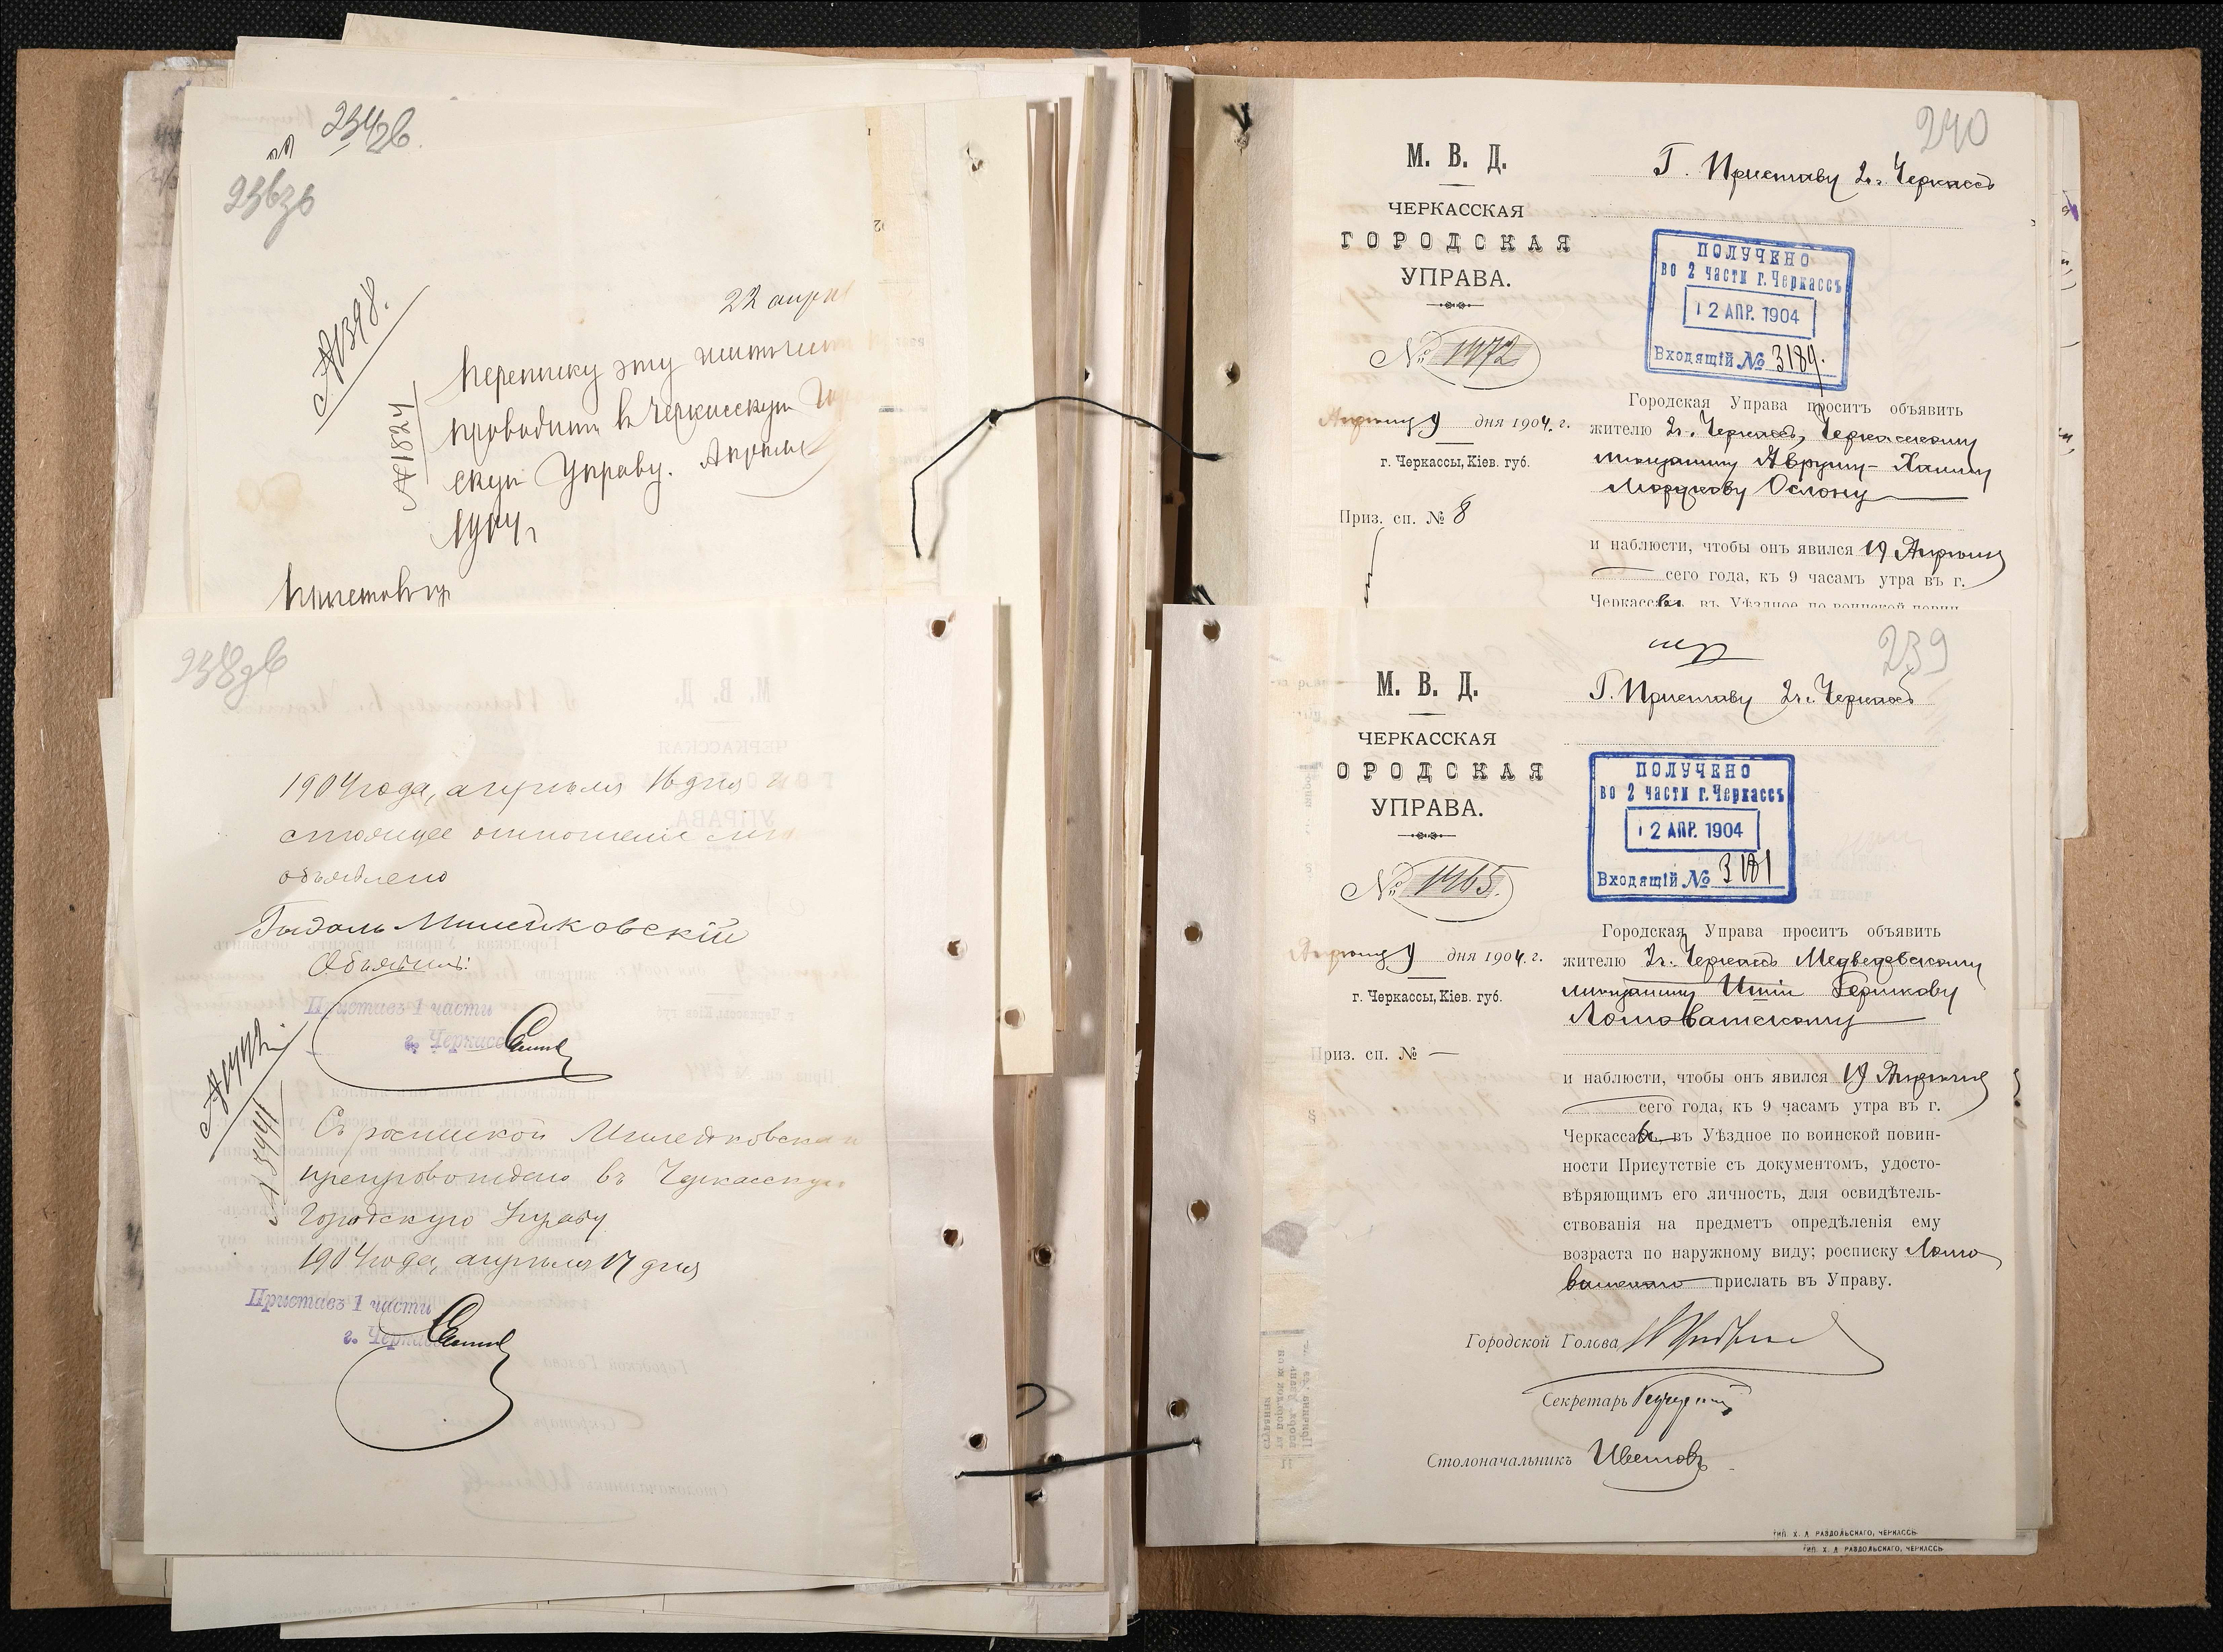 234об.
236об
№1398.
22 апрел
№1824
Переписку эту
проводить в Черкасскую Горо
скую Управу. Апреля
Приставъ
238об
1904 года, апрѣля 16 дня н
стоящее отношеніе мнѣ
объявлено
Милейковскій
Объявилъ:
Приставъ 1 части
г. Черкассъ
Съ роспиской Милейковска
препровождено въ Черкасскую
Городскую Управу
1904 года, апрѣля 17 дня
Приставъ 1 части
г. Черкассъ
240
М. В. Д.
ЧЕРКАССКАЯ
ГОРОДСКАЯ
УПРАВА.
№ 1472
Апрѣля 9 дня 1904. г.
г. Черкассы, Кіев. губ.
Приз. сп. № 8
Г. Приставу 2 ч. Черкассъ
ПОЛУЧЕНО
во 2 части г. Черкассъ
12 АПР. 1904
Входящій № 3184.
Городская Управа проситъ объявить
жителю 2 ч. Черкассъ, Черкасскому
мещанину Авруму-Хаиму
Ослону
и наблюсти, чтобы онъ явился 19 Апрѣля
сего года, къ 9 часамъ утра въ г.
Черкассахъ въ Уѣздное по воинской повин-
239
М. В. Д.
ЧЕРКАССКАЯ
ОРОДСКАЯ
УПРАВА.
№ 1465.
Апрѣля 9 дня 1904. г.
г. Черкассы, Кіев. губ.
Приз. сп. № —
Г. Приставу 2 ч. Черкассъ
ПОЛУЧЕНО
во 2 части г. Черкассъ
12 АПР. 1904
Входящій № 3181
Городская Управа проситъ объявить
жителю 2 ч. Черкассъ Медведовскому
мещанину Ицку Гершкову
Ломоватскому
и наблюсти, чтобы онъ явился 19 Апрѣля
сего года, къ 9 часамъ утра въ г.
Черкассахъ въ Уѣздное по воинской повин-
ности Присутствіе съ документомъ, удосто-
вѣряющимъ его личность, для освидѣтель-
ствованія на предметъ опредѣленія ему
возраста по наружному виду; росписку Ломо
ватскаго прислать въ Управу.
Городской Голова
Секретарь
Столоначальникъ Цвѣтовъ
ТИП. Х. Л. РАЗДОЛЬСКАГО, ЧЕРКАССЪ
ТИП. Х. Л. РАЗДОЛЬСКАГО, ЧЕРКАССЪ